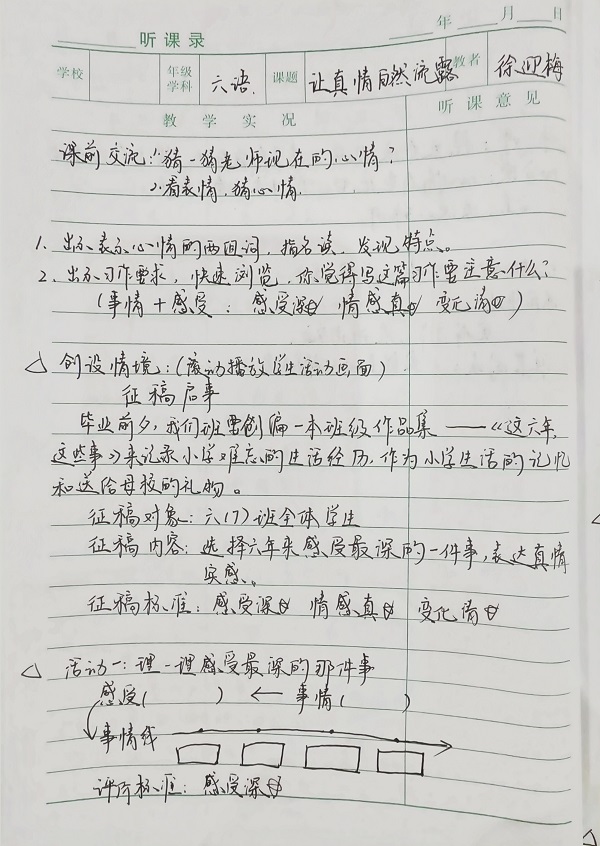 听课录 年 月 日
学校 年级学科 六语. 课题 让真情自然流露 教者 徐迎梅
教学实况 听课意见
课前交流:1.猜一猜老师现在的心情?
2.看表情,猜心情.
1. 出示表示心情的两组词,指名读,发现特点。
2. 出示习作要求,快速浏览,你觉得写这篇习作要注意什么?
(事情+感受: 感受深 情感真 变化清)
△ 创设情境:(滚动播放学生活动画面)
征稿启事
毕业前夕,我们班要创编一本班级作品集——《这六年,
这些事》来记录小学难忘的生活经历,作为小学生活的记忆
和送给母校的礼物。
征稿对象:六(7)班全体学生
征稿内容:选择六年来感受最深的一件事,表达真情
实感。
征稿标准:感受深 情感真 变化清
△ 活动一:理一理感受最深的那件事
感受( ) ← 事情( )
事情线
评价标准:感受深